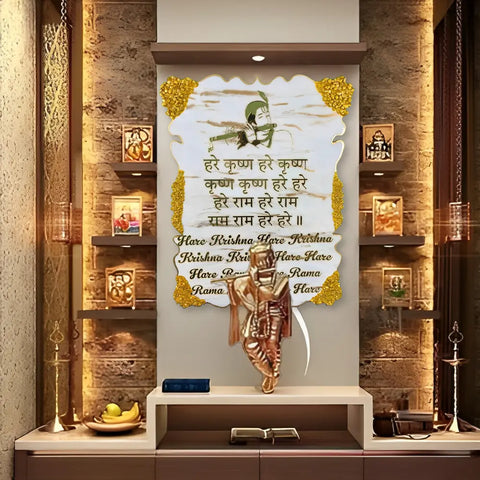 हरे कृष्ण हरे कृष्ण
कृष्ण कृष्ण हरे हरे
हरे राम हरे राम
राम राम हरे हरे ॥
Hare Krishna Hare Krishna
Krishna Hare Hare
Hare Rama
Rama Hare